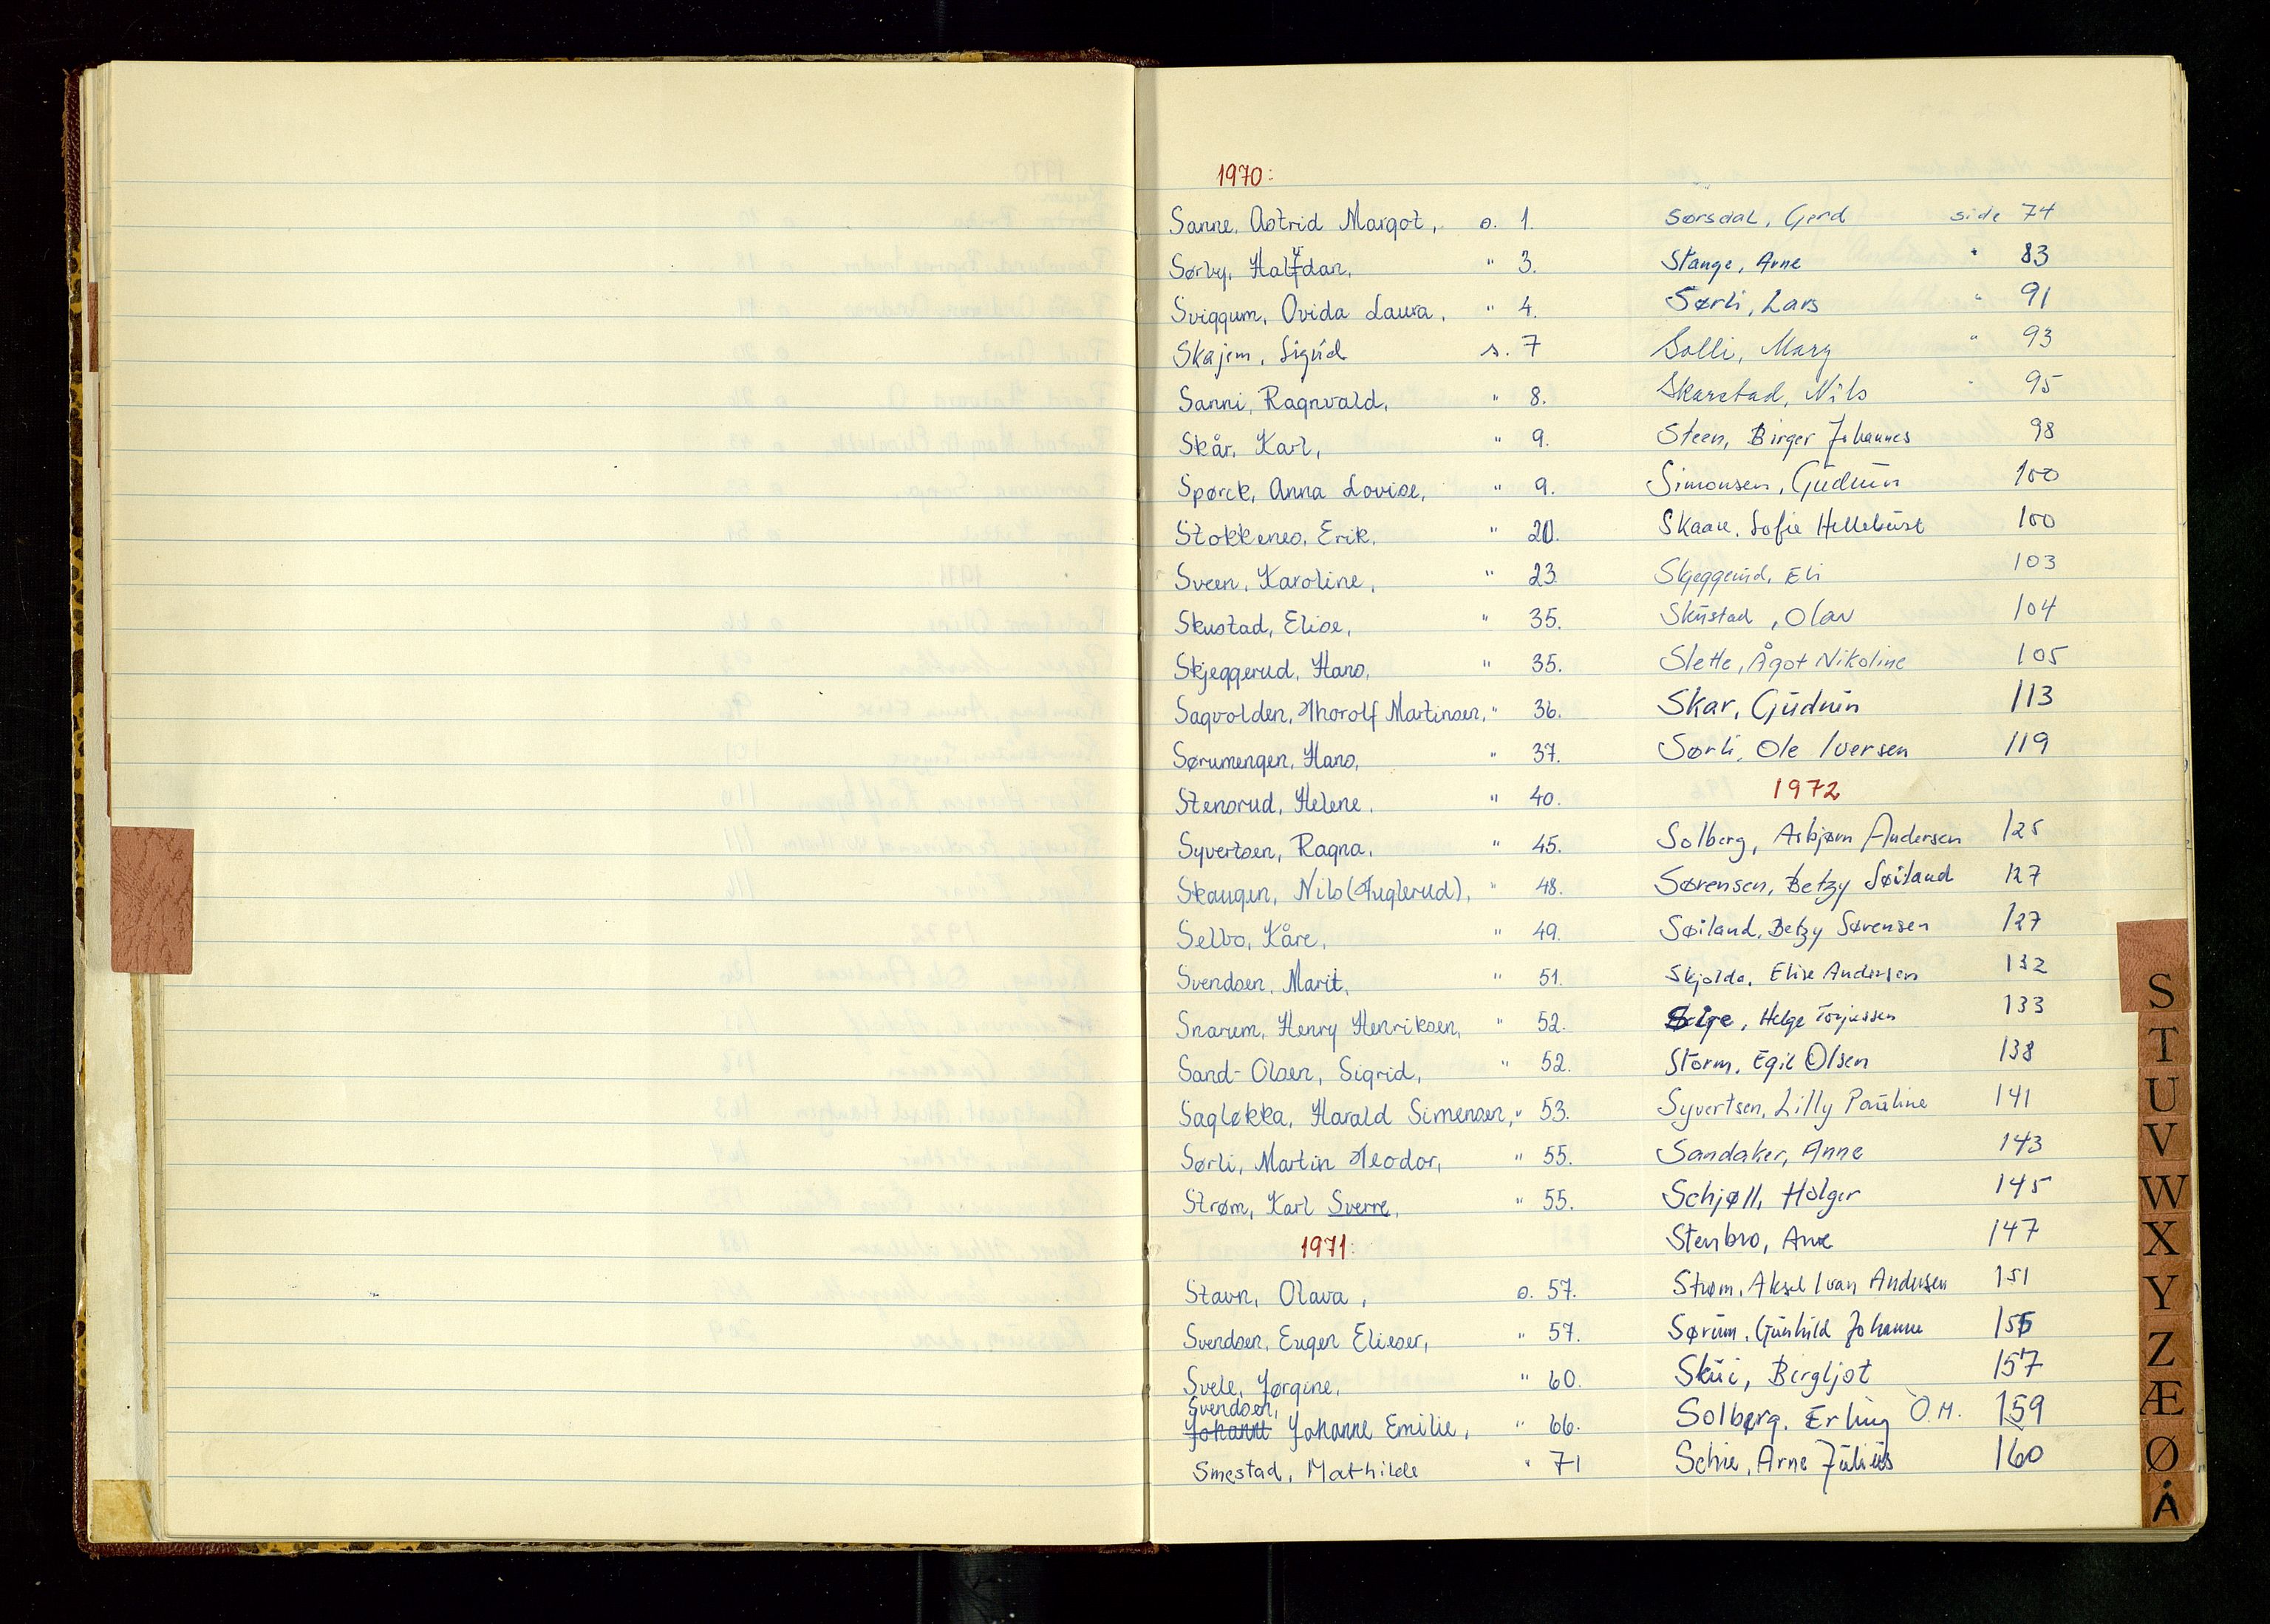 1970:
Sanne, Astrid Margot, s. 1.
Sørby, Halfdan, " 3.
Sviggum, Ovida Laura, " 4.
Skajem, Sigrid s. 7
Sanni, Ragnvald, " 8.
Skår, Karl, " 9.
Spørck, Anna Lovise, " 9.
Stokkenes, Erik, " 20.
Sveen, Karoline, " 23.
Skustad, Elise, " 35.
Skjeggerud, Hans, " 35.
Sagvolden, Thorolf Martinsen, " 36.
Sørumengen, Hans, " 37.
Stensrud, Helene, " 40.
Syvertsen, Ragna, " 45.
Skaugen, Nils (Fuglerud), " 48.
Selbo, Kåre, " 49.
Svendsen, Marit, " 51.
Snarum, Henry Henriksen, " 52.
Sand-Olsen, Sigrid, " 52.
Sagløkka, Harald Simensen, " 53.
Sørli, Martin Teodor, " 55.
Strøm, Karl Sverre, " 55.
1971:
Stavn, Olava, s. 57.
Svendsen, Eugen Elieser, " 57.
Svele, Jørgine, " 60.
Svendsen,
Johanne Johanne Emilie, " 66.
Smestad, Mathilde " 71
Sørsdal, Gerd side 74
Stange, Arne " 83
Sørli, Lars " 91
Solli, Mary " 93
Skarstad, Nils " 95
Steen, Birger Johannes 98
Simonsen, Gudrun 100
Skaare, Sofie Hellebust 100
Skjeggerud, Eli 103
Skustad, Olav 104
Slette, Ågot Nikoline 105
Skar, Gudrun 113
Sørli, Ole Iversen 119
1972
Solberg, Asbjørn Andersen 125
Sørensen, Betzy Søiland 127
Søiland, Betzy Sørensen 127
Skjolde, Elise Andersen 132
Helge Torjussen 133
Storm, Egil Olsen 138
Syvertsen, Lilly Pauline 141
Sandaker, Anne 143
Schjøll, Holger 145
Stenbro, Arne 147
Strøm, Aksel Ivan Andersen 151
Sørum, Gunhild Johanne 155
Skui, Bergljot 157
Solberg, Erling O.M. 159
Schie, Arne Julius 160
S
T
U
V
W
X
Y
Z
Æ
Ø
Å